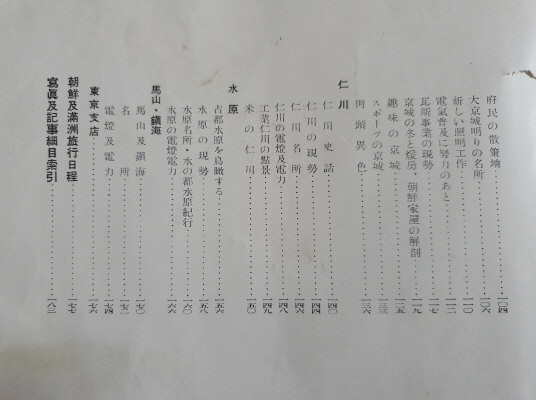 府民の散策地……一〇四
大京城明りの名所……一〇六
新しい照明工作……一一〇
電氣普及に努力のあと……一一二
瓦斯事業の現勢……一一七
京城の冬と煖房・朝鮮家屋の解剖……一一九
趣味の京城……一二五
スポーツの京城……一三三
街頭異色……一三六
仁川
仁川史話……一四〇
仁川の現勢……一四四
仁川名所……一四六
仁川の電燈及電力……一四八
工業仁川の點景……一四九
米の仁川……一五〇
水原
古都水原を鳥瞰する……一五六
水原の現勢……一五八
水原名所・水の都水原紀行……一六〇
水原の電燈電力……一六六
馬山・鎭海
馬山及鎭海……一七〇
名所……一七二
電燈及電力……一七四
東京支店……一七六
朝鮮及滿洲旅行日程……一七七
寫眞及記事細目索引……一八三